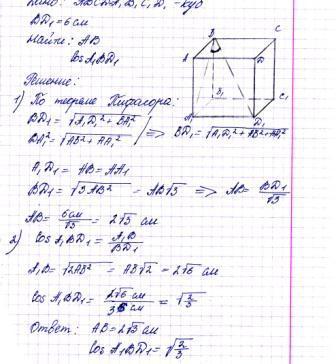 Дано: ABCDA₁B₁C₁D₁ - куб
BD₁ = 6 см
Найти: AB
cos A₁BD₁
Решение:
1) По теореме Пифагора:
BD₁ = √(A₁D₁² + BA₁²)
BA₁² = √(AB² + AA₁²) => BD₁ = √(A₁D₁² + AB² + AA₁²)
A₁D₁ = AB = AA₁
BD₁ = √(3AB²) = AB√3 => AB = BD₁/√3
AB = 6см/√3 = 2√3 см
2) cos A₁BD₁ = A₁B/BD₁
A₁B = √(2AB²) = AB√2 = 2√6 см
cos A₁BD₁ = 2√6 см/6 см = √(2/3)
Ответ: AB = 2√3 см
cos A₁BD₁ = √(2/3)
B
C
A
D
B₁
C₁
A₁
D₁